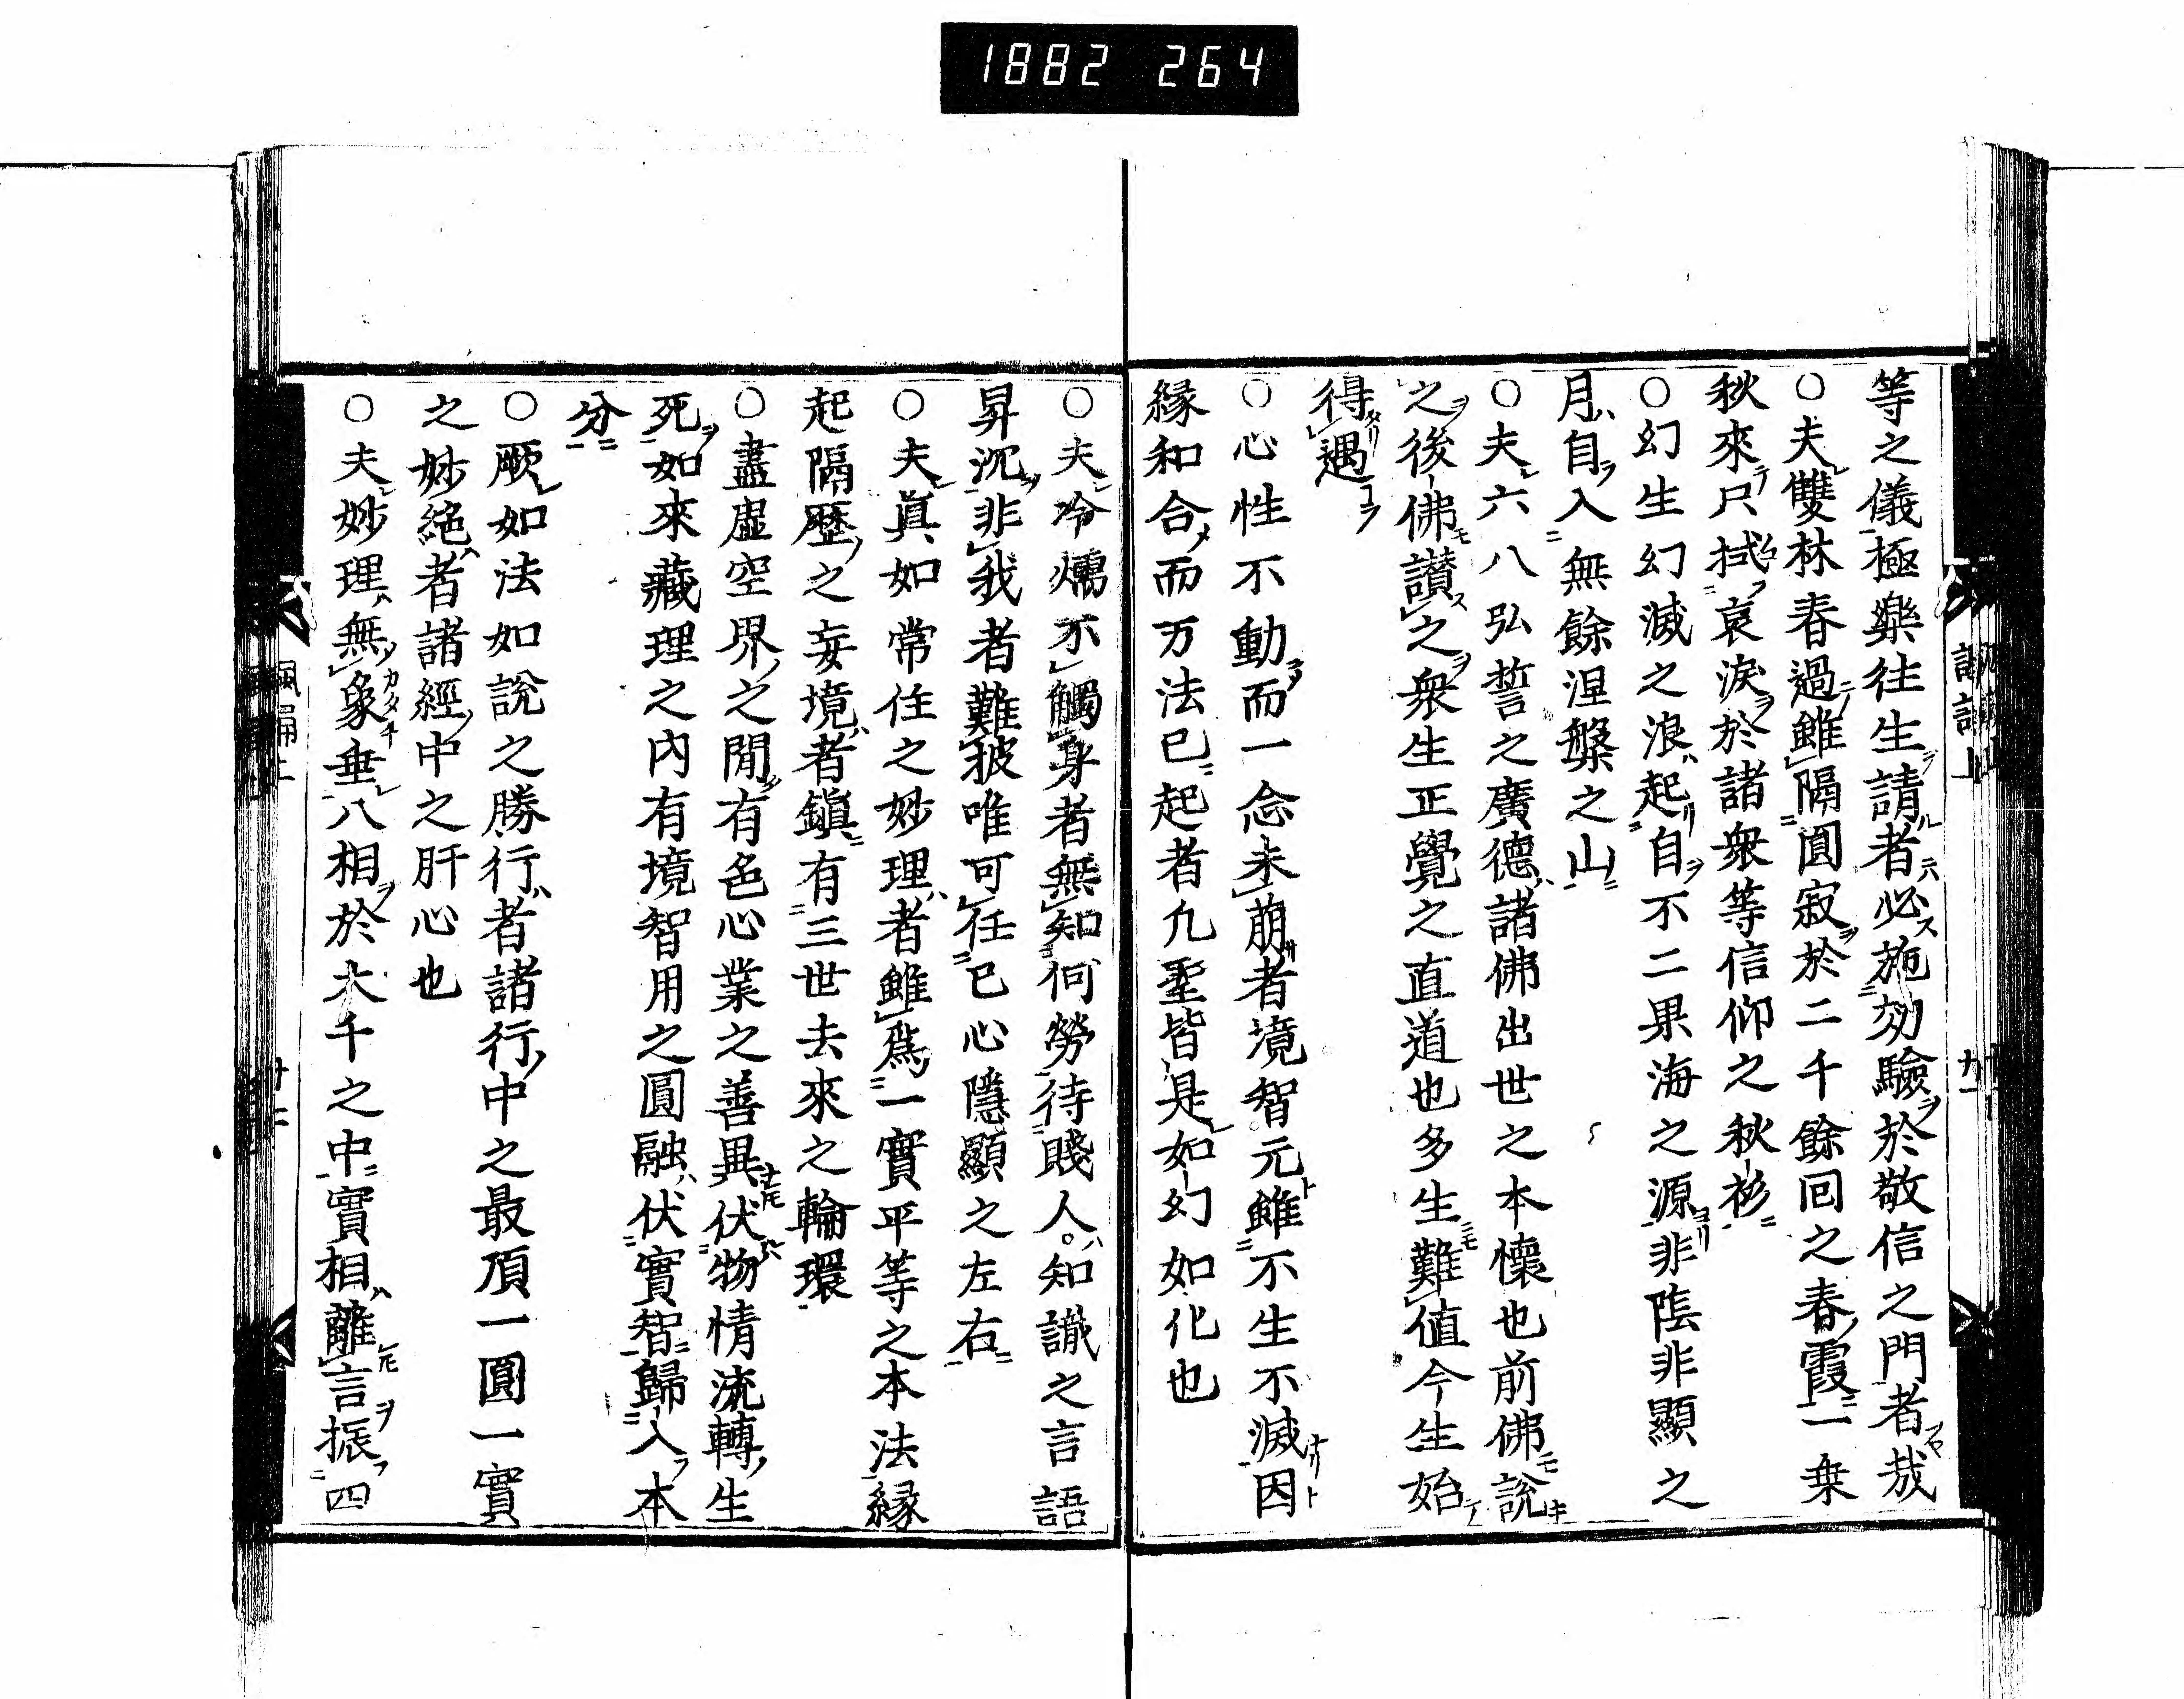 1882 264
等之儀極樂往生請者必施効驗於敬信之門者哉
○夫雙林春過雖隔圓寂於二千餘回之春霞一乗
秋來尺拭哀淚於諸衆等信仰之秋衫
○幻生幻滅之浪起自不二果海之源非隂非顯之
月自入無餘涅槃之山
○夫六八弘誓之廣德諸佛出世之本懷也前佛說
之後佛讃之衆生正覺之直道也多生難値今生始
得遇
○心性不動而一念未萠者境智元雖不生不滅因
緣和合而万法已起者凢聖皆是如幻如化也
○夫冷煗不觸身者無知何勞待賤人知識之言語
昇沉非我者難披唯可任已心隱顯之左右
○夫眞如常住之妙理者雖爲一實平等之本法緣
起隔歷之妄境者鎭有三世去來之輪環
○盡虚空界之間有色心業之善異伏物情流轉生
死如來藏理之內有境智用之圓融伏實智歸入本
分
○厥如法如說之勝行者諸行中之最頂一圓一實
之妙絕者諸經中之肝心也
○夫妙理無象垂八相於大千之中實相離言振四